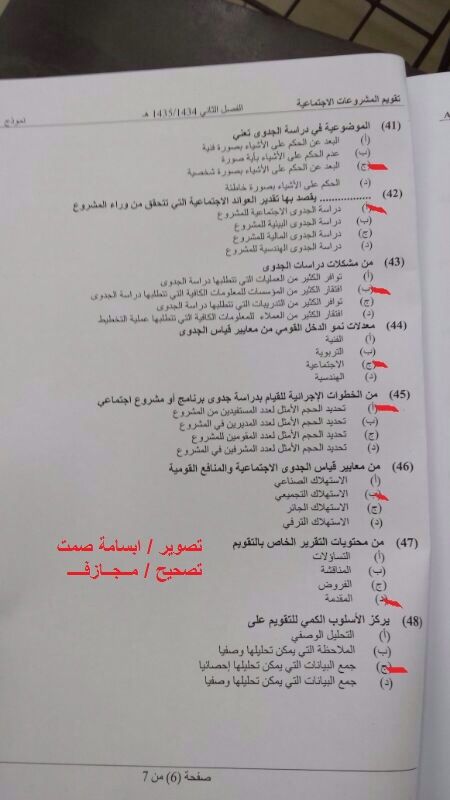 تقويم المشروعات الاجتماعية
الفصل الثاني 1435/1434 هـ
نموذج
(41) الموضوعية في دراسة الجدوى تعني
(أ) البعد عن الحكم على الأشياء بصورة فنية
(ب) عدم الحكم على الأشياء بأية صورة
(ج) البعد عن الحكم على الأشياء بصورة شخصية
(د) الحكم على الأشياء بصورة خاطئة
(42) ................ يقصد بها تقدير العوائد الاجتماعية التي تتحقق من وراء المشروع
(أ) دراسة الجدوى الاجتماعية للمشروع
(ب) دراسة الجدوى البيئية للمشروع
(ج) دراسة الجدوى المالية للمشروع
(د) دراسة الجدوى الهندسية للمشروع
(43) من مشكلات دراسات الجدوى
(أ) توافر الكثير من العمليات التي تتطلبها دراسة الجدوى
(ب) افتقار الكثير من المؤسسات للمعلومات الكافية التي تتطلبها دراسة الجدوى
(ج) توافر الكثير من التدريبات التي تتطلبها دراسة الجدوى
(د) افتقار الكثير من العملاء للمعلومات الكافية التي تتطلبها عملية التخطيط
(44) معدلات نمو الدخل القومي من معايير قياس الجدوى
(أ) الفنية
(ب) التربوية
(ج) الاجتماعية
(د) الهندسية
(45) من الخطوات الإجرائية للقيام بدراسة جدوى برنامج أو مشروع اجتماعي
(أ) تحديد الحجم الأمثل لعدد المستفيدين من المشروع
(ب) تحديد الحجم الأمثل لعدد المديرين في المشروع
(ج) تحديد الحجم الأمثل لعدد المقومين للمشروع
(د) تحديد الحجم الأمثل لعدد المشرفين في المشروع
(46) من معايير قياس الجدوى الاجتماعية والمنافع القومية
(أ) الاستهلاك الصناعي
(ب) الاستهلاك التجميعي
(ج) الاستهلاك الجائر
(د) الاستهلاك الترفي
(47) من محتويات التقرير الخاص بالتقويم
(أ) التساؤلات
(ب) المناقشة
(ج) الفروض
(د) المقدمة
تصوير / ابسامة صمت
تصحيح / مـــجـــازفـــــ
(48) يركز الأسلوب الكمي للتقويم على
(أ) التحليل الوصفي
(ب) الملاحظة التي يمكن تحليلها وصفيا
(ج) جمع البيانات التي يمكن تحليلها إحصائيا
(د) جمع البيانات التي يمكن تحليلها وصفيا
صفحة (6) من 7